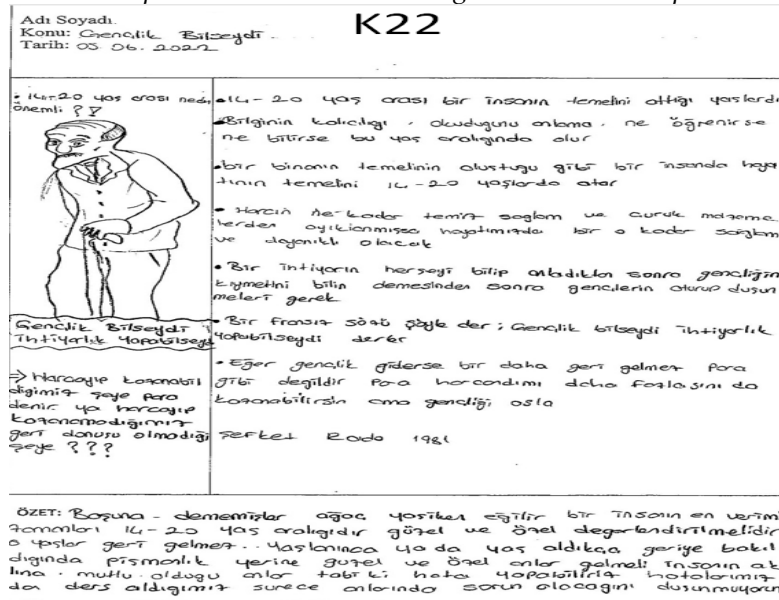 Adı Soyadı.
K22
Konu: Gençlik Bilseydi.
Tarih: 05.06.2022
• 14-20 yaş arası neden
önemli ??
Gençlik Bilseydi
ihtiyarlık yapabilseydi
⇒ Harcayıp kazanabil
diğimiz şeye para
denir ya harcayıp
kazanamadığımız
geri dönüşü olmadığı
şeye ???
• 14-20 yaş arası bir insanın temelini attığı yaşlardı
• Bilginin kalıcılığı, okuduğunu anlama, ne öğrenirse
ne bilirse bu yaş aralığında olur
• bir binanın temelinin oluştuğu gibi bir insanda haya
tının temelini 14-20 yaşlarda atar
• Harcın ne kadar temiz sağlam ve çürük malzeme
lerden ayıklanmışsa hayatımızda bir o kadar sağlam
ve dayanıklı olacak
• Bir ihtiyarın herşeyi bilip anladıktan sonra gençliğin
kıymetini bilin demesinden sonra gençlerin oturup düşün
meleri gerek
• Bir Fransız sözü şöyle der; Gençlik bilseydi ihtiyarlık
yapabilseydi derler
• Eğer gençlik giderse bir daha geri gelmez para
gibi değildir para harcandımı daha fazlasını da
kazanabilirsin ama gençliği asla
Şefket Rado 1981
ÖZET: Boşuna dememişler ağaç yaşiken eğilir bir insanın en verimi
zamanları 14-20 yaş aralığıdır güzel ve özel değerlendirilmelidir
o yaşlar geri gelmez.. Yaşlanınca ya da yaş aldıkça geriye bakıl
dığında pişmanlık yerine güzel ve özel anlar gelmeli insanın ak
lına. mutlu olduğu anlar tabi ki hata yapabiliriz hatalarımız
dan ders aldığımız sürece anlarında sorun olacağını düşünmüyorum